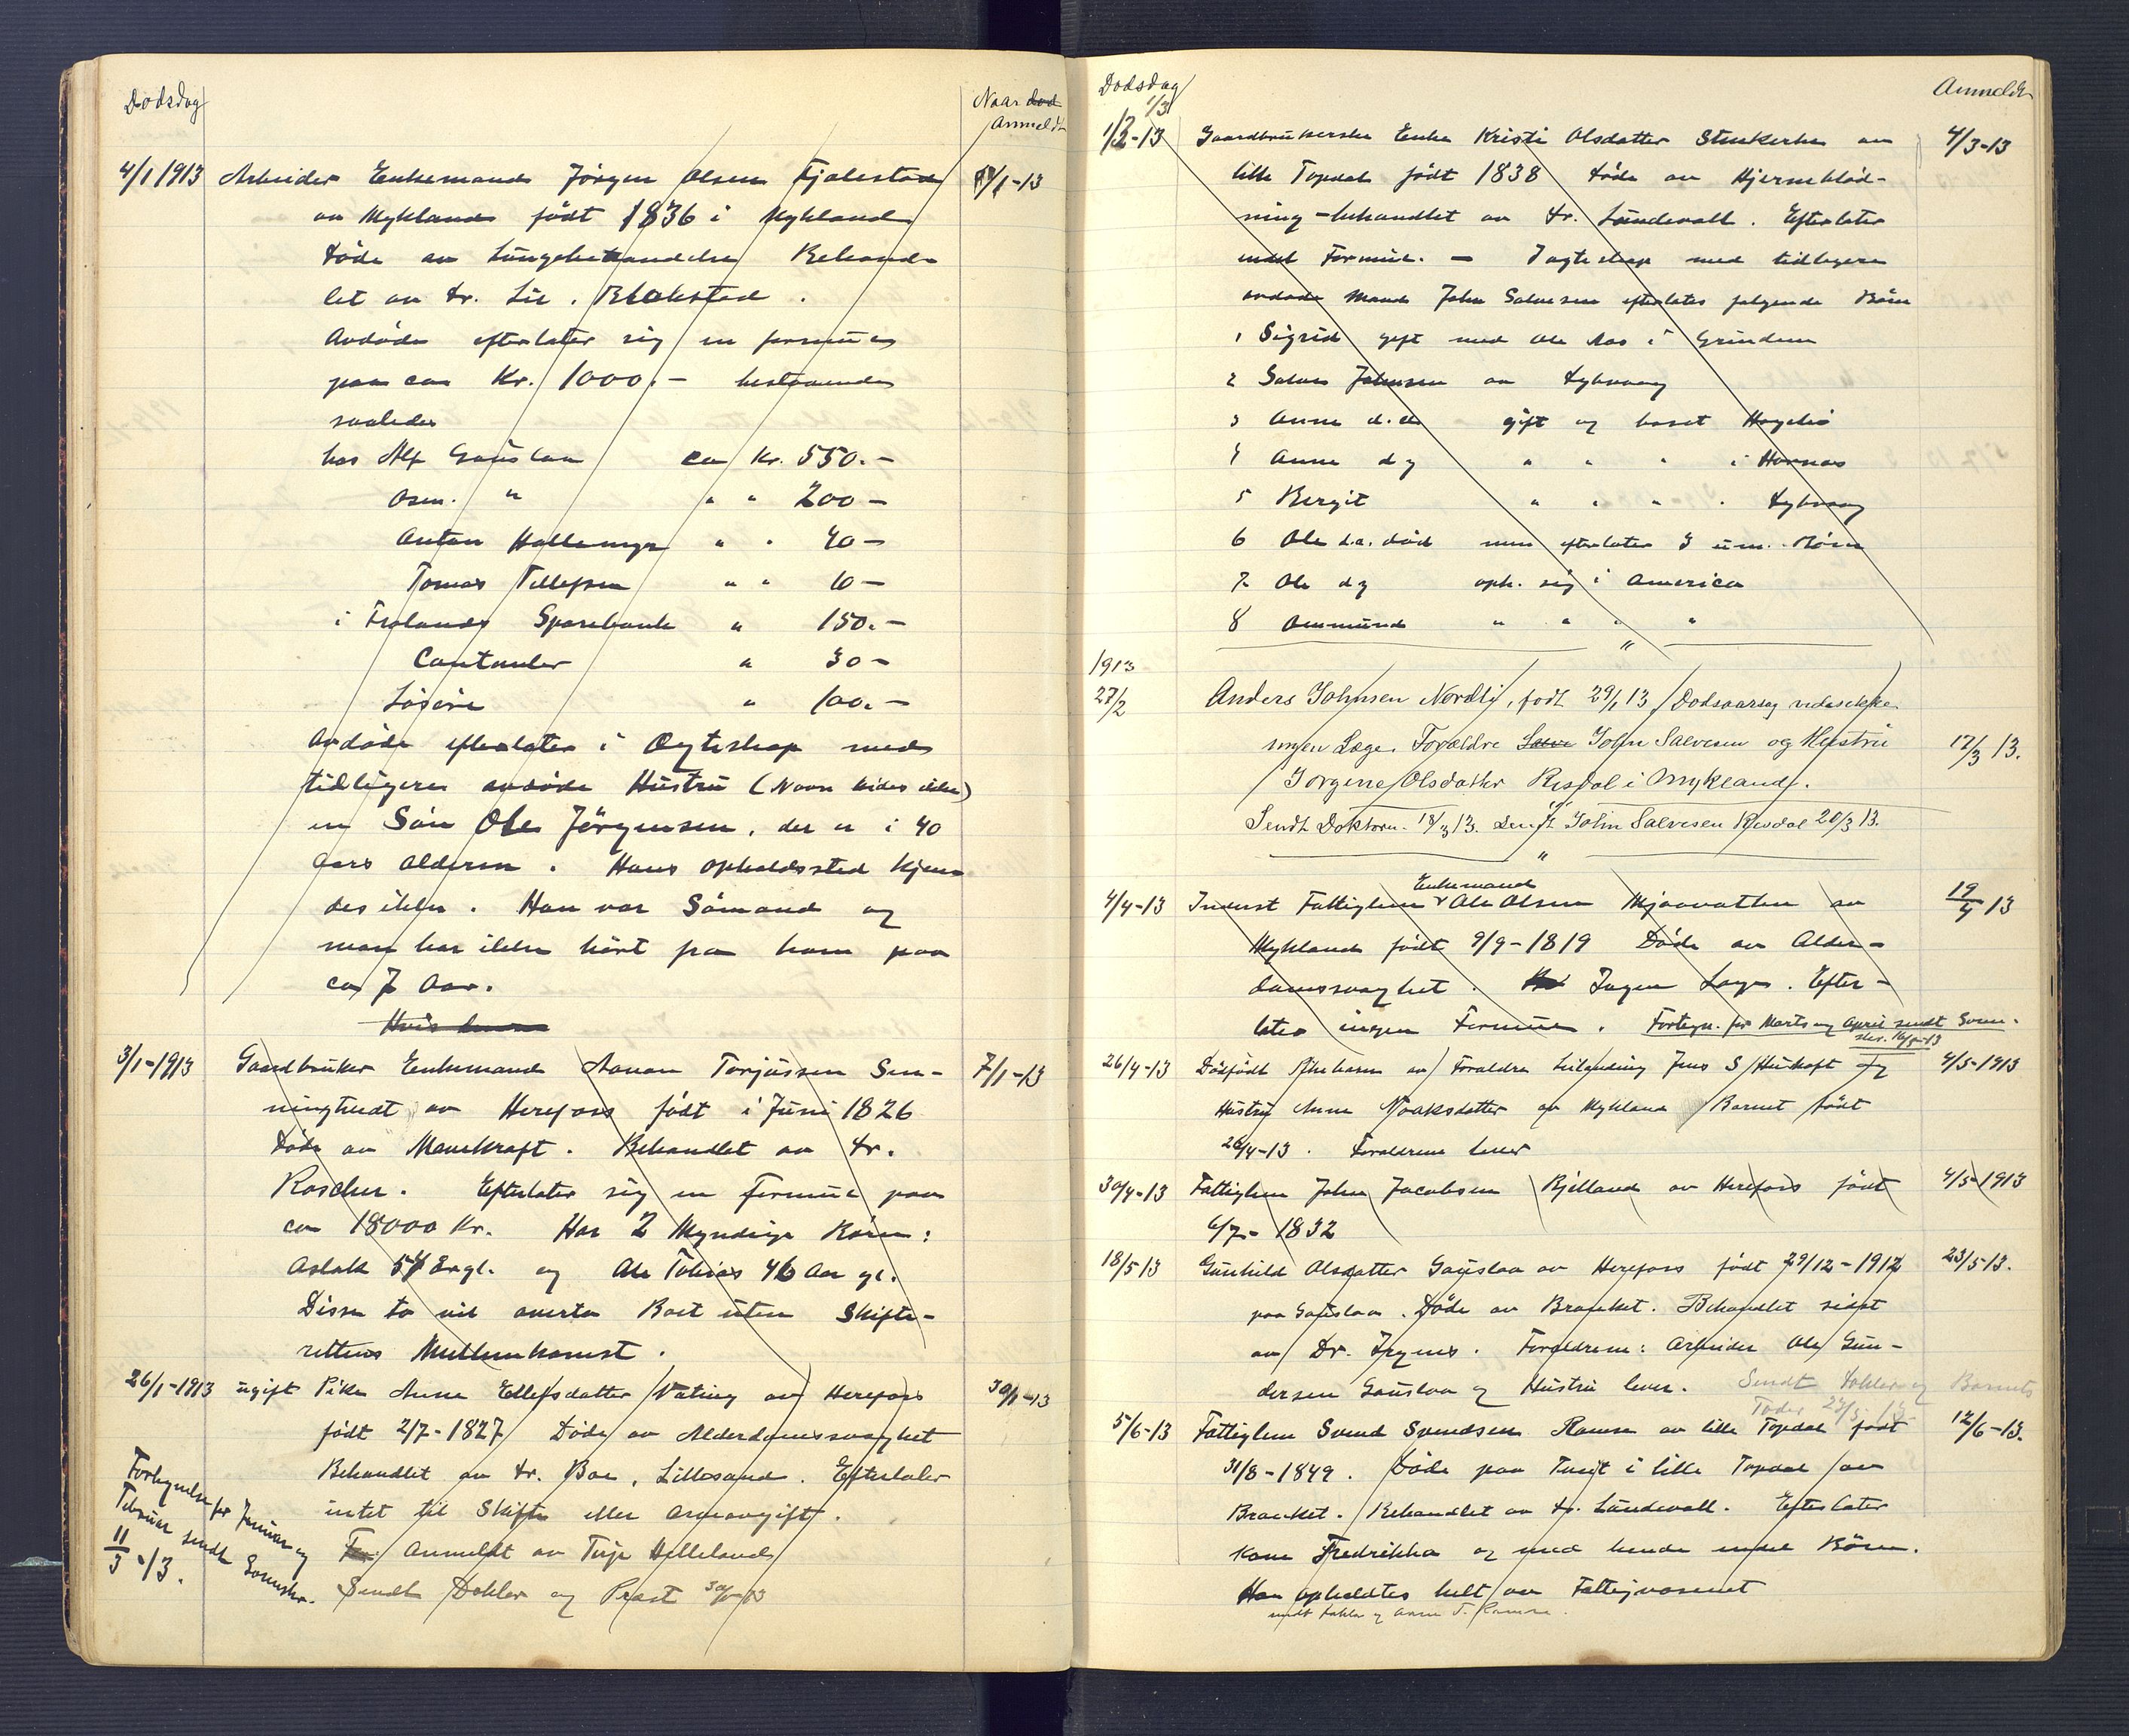 Dødsdag
Naar død
Anmeldt
4/1 1913 Arbeider Enkemand Jörgen Olsen Fjalestad 8/1-13
av Mykland födt 1836 i Mykland
döde av Lungebetændelse Behand
let av Dr. Lie. Blakstad.
Avdöde efterlater sig en formue
paa ca Kr. 1000.- bestaaende
saaledes
hos Alf Gauslaa ca Kr. 550.-
Osm. " " " 200-
Anton Hallemyr " " 40-
Tomas Tellefsen " " 10-
i Frolands Sparebank " 150.-
Contanter " 30-
Lösöre " 100.-
Avdöde efterlater i Ægteskap med
tidligere avdöde Hustru (Navn vides ikke)
en Sön Ole Jörgensen, der er i 40
aars alderen. Hans opholdssted kjen
des ikke. Han var Sömand og
man har ikke hört fra ham paa
ca 7 Aar.
3/1-1913 Gaardbruker Enkemand Aanon Torjussen Sen- 7/1-13
ningtredt av Herefoss födt i Juni 1826
Döde av Mavekraft. Behandlet av Dr.
Roscher. Efterlater sig en Formue paa
ca 18000 Kr. Har 2 Myndige Börn:
Aslak 54 Aar gl. og Ole Tobias 46 Aar gl.
Disse to vil overta Boet uten Skifte-
rettens Mellemkomst.
26/1-1913 ugift Pike Anne Ellefsdatter Vatney av Herefoss 30/1-13
födt 2/7-1827 Döde av Alderdomssvaghet
Behandlet av Dr. Boe, Lillesand. Efterlater
intet til Skifte eller arveavgift.
Anmeldt av Terje Helleland
Sendt Dokter og Prest 30/1-13
Fortegnelse for Januar og
Februar sendt Sorenskr.
11/3-13.
Dødsdag
Anmeldt
1/3
1/3-13 Gaardbrukerske Enke Kristi Olsdatter Stenkerke av 4/3-13
lille Topdal födt 1838 döde av Hjerneblöd-
ning - behandlet av Dr. Lundevall. Efterlater
intet Formue. - I ægteskap med tidligere
avdöde Mand John Salvesen efterlates følgende Börn
1 Sigrid gift med Ole Aas i Grindem
2 Salve Johnsen av Dybvaag
3 Anne d.e. gift og boset Hagelö
4 Anne d y " " " i Hornnes
5 Bergit " " " " Dybvaag
6 Ole d.e. död men efterlater 3 um. Börn
7 Ole d y oph. sig i America
8 Ommund " " " "
"
1913
27/2 Anders Johnsen Nordli, født 29/1 13 Dødsaarsag vides ikke
ingen Læge. Forældre Salve John Salvesen og Hustru 17/3 13.
Jorgine Olsdatter Risdal i Mykland.
Sendt Doktoren 18/3 13. Lensm John Salvesen Risdal 20/3 13.
"
Enkemand
4/4-13 Inderst Fattiglem Ole Olsen Mjaavatten av 19/4 13
Mykland födt 9/9-1819 Döde av Alder-
domssvaghet. Ingen Læge. Efter-
later ingen Formue. Fortegn. for Marts og April sendt Soren-
skr. 16/5-13
26/4-13 Dödfödt Pikebarn av Foraldre Leilænding Jens S Huskoft og 4/5-1913
Hustru Anne Noaksdatter av Mykland Barnet födt
26/4-13. Foraldrene lever
30/4-13 Fattiglem John Jacobsen Bjelland av Herefoss födt 4/5-1913
6/7-1832
18/5-13 Gunhild Olsdatter Gauslaa av Herefoss födt 29/12-1912 23/5-13.
paa Gauslaa. Döde av Bronket. Behandlet sidst
av Dr. Irgens. Foreldrene: Arbeider Ole Gun-
dersen Gauslaa og Hustru lever. Sendt Dokter og Barnets
Fader 23/5-13
5/6-13 Fattiglem Svend Svendsen Ramse av lille Topdal født 12/6-13.
31/8-1849. Döde paa Tveit i lille Topdal av
Bronket. Behandlet av Dr. Lundevall. Efterlater
Kone Fredrikka og med hende Börn.
Han opholdtes helt av Fattigvæsenet
sendt Dokter og Anne T. Ramse.